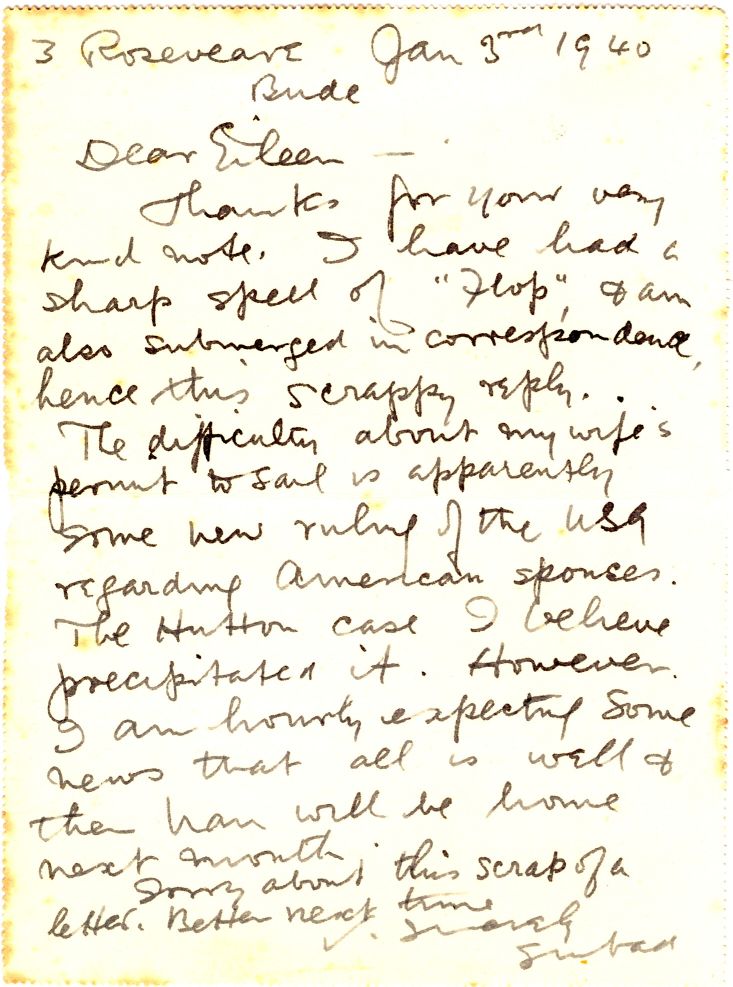 3 Roseveare Jan 3rd 1940
Bude
Dear Eileen —
Thanks for your very
kind note. I have had a
sharp spell of "Flop", & am
also submerged in correspondence,
hence this scrappy reply.
The difficulty about my wife's
permit to sail is apparently
some new ruling of the USA
regarding American spouses.
The Hutton case I believe
precipitated it. However
I am hourly expecting some
news that all is well &
then will be home
next month.
Sorry about this scrap of a
letter. Better next time
Sinbad